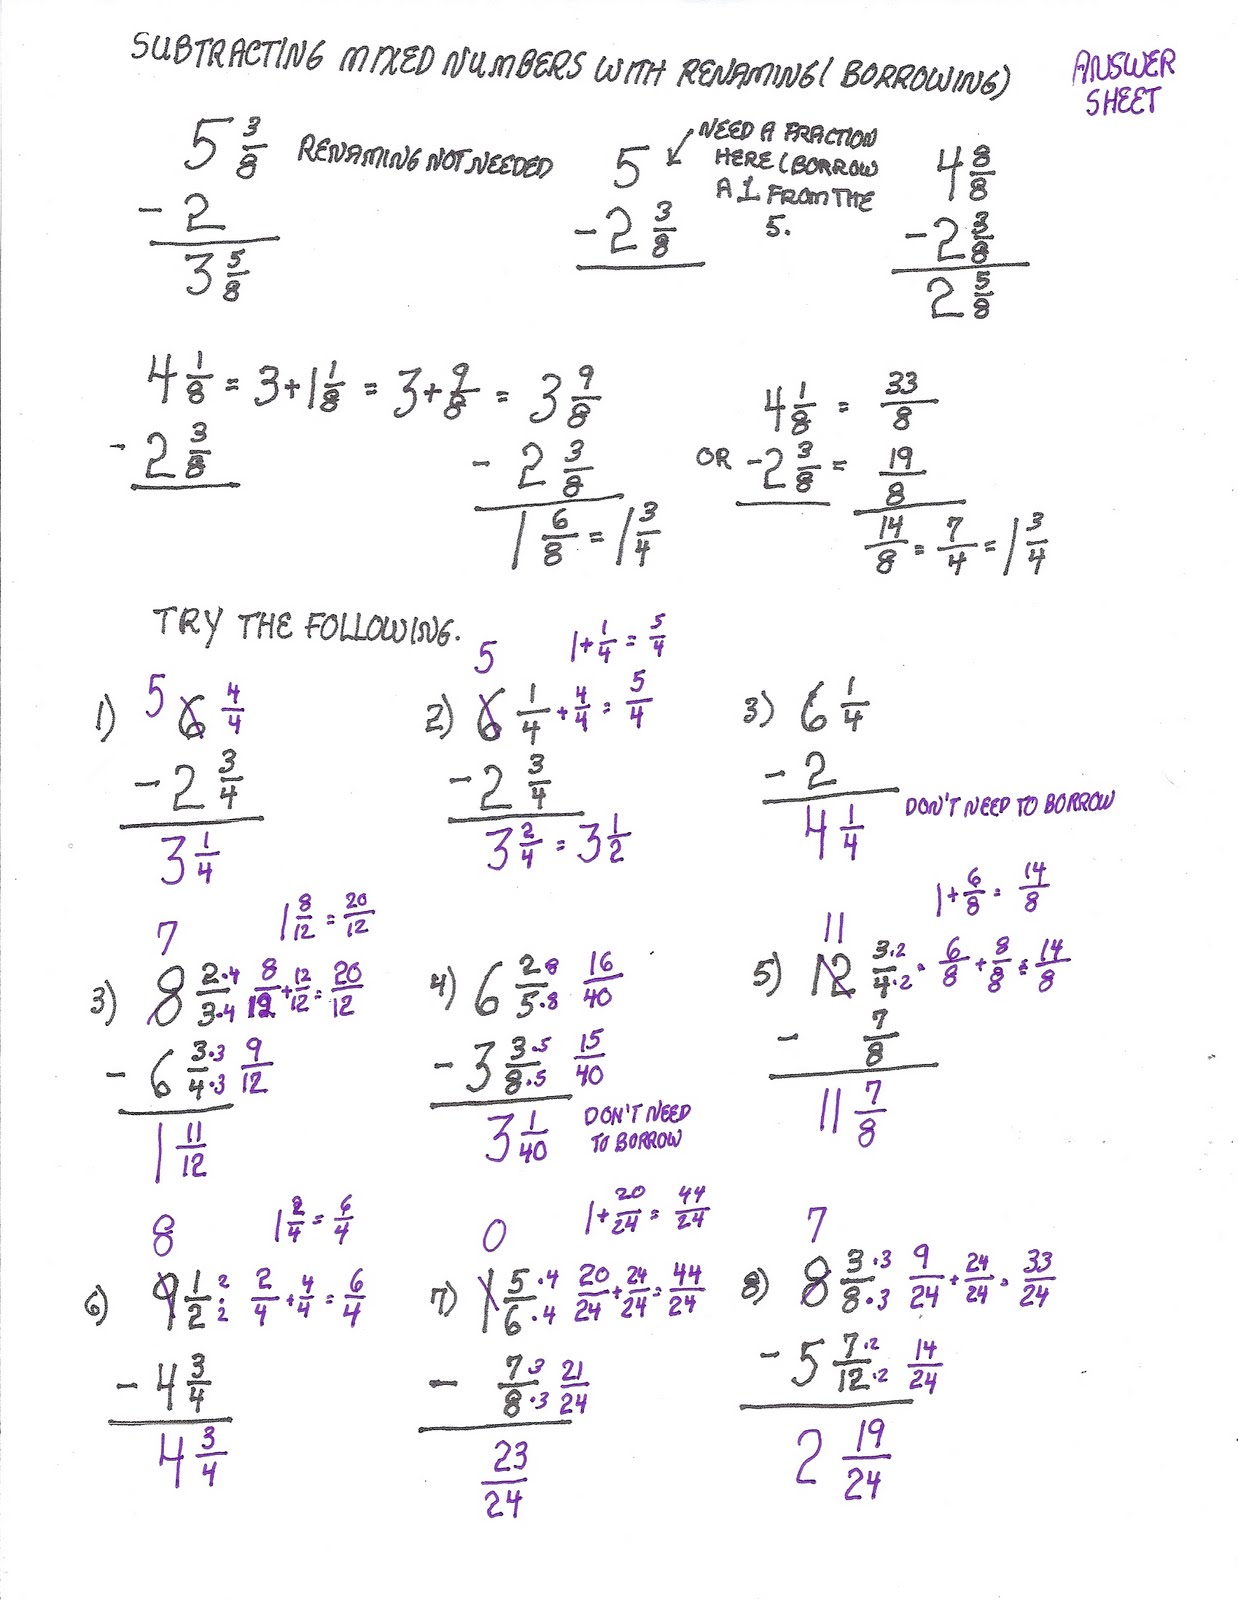 SUBTRACTING MIXED NUMBERS WITH RENAMING (BORROWING)
ANSWER
SHEET
5 3/8 RENAMING NOT NEEDED
- 2
3 5/8
5
- 2 3/8
NEED A FRACTION
HERE (BORROW
A 1 FROM THE
5.
4 8/8
- 2 3/8
2 5/8
4 1/8 = 3 + 1 1/8 = 3 + 9/8 = 3 9/8
- 2 3/8
- 2 3/8
1 6/8 = 1 3/4
OR
4 1/8 = 33/8
- 2 3/8 = 19/8
14/8 = 7/4 = 1 3/4
TRY THE FOLLOWING.
1) 5 6 4/4
- 2 3/4
3 1/4
5 1 + 1/4 = 5/4
2) 6 1/4 + 4/4 = 5/4
- 2 3/4
3 2/4 = 3 1/2
3) 6 1/4
- 2
4 1/4 DON'T NEED TO BORROW
7 1 8/12 = 20/12
3) 8 2·4/3·4 8/12 + 12/12 = 20/12
- 6 3·3/4·3 9/12
1 11/12
4) 6 2·8/5·8 16/40
- 3 3·5/8·5 15/40
3 1/40 DON'T NEED
TO BORROW
1 + 6/8 = 14/8
11
5) 12 3·2/4·2 = 6/8 + 8/8 = 14/8
- 7/8
11 7/8
8 1 2/4 = 6/4
6) 9 1·2/2·2 2/4 + 4/4 = 6/4
- 4 3/4
4 3/4
0 1 + 20/24 = 44/24
7) 1 5·4/6·4 20/24 + 24/24 = 44/24
- 7·3/8·3 21/24
23/24
7
8) 8 3·3/8·3 9/24 + 24/24 = 33/24
- 5 7·2/12·2 14/24
2 19/24